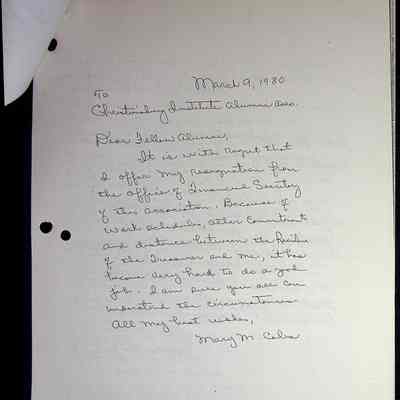 March 9, 1980
To
Christiansburg Institute Alumni Asso.
Dear Fellow Alumni,
It is with regret that
I offer my resignation from
the office of Financial Secretary
of this association. Because of
work schedules, other commitment
and distance between the
of the Treasurer and me, it has
become very hard to do a good
job. I am sure you all can
understand the circumstances.
All my best wishes,
Mary M.